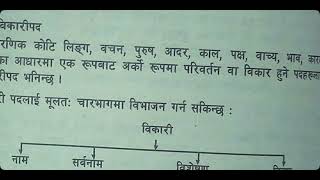 विकारीपद
रणिक कोटि लिङ्ग, वचन, पुरुष, आदर, काल, पक्ष, वाच्य, भाव,
का आधारमा एक रूपबाट अर्को रूपमा परिवर्तन वा विकार हुने
रीपद भनिन्छ ।
री पदलाई मूलतः चारभागमा विभाजन गर्न सकिन्छ :
विकारी
नाम सर्वनाम विशेषण